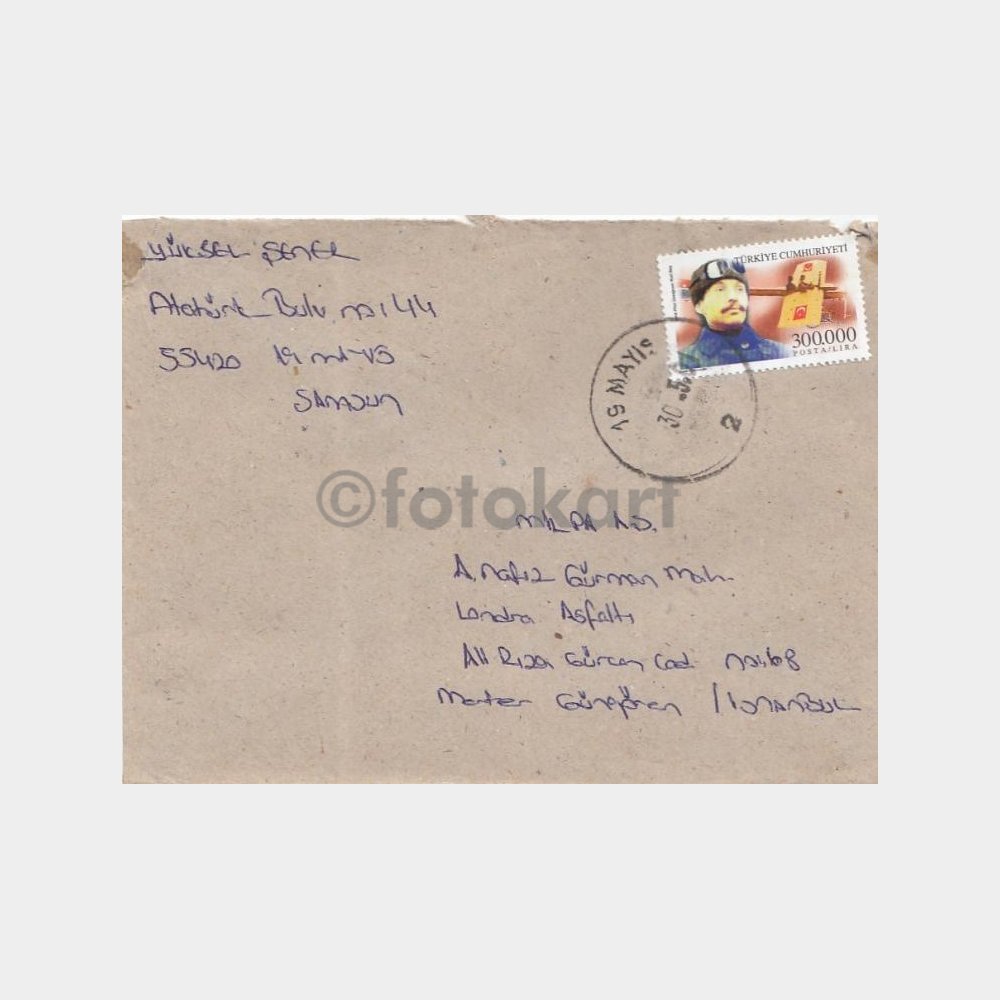 YÜKSEL ŞENEL
Atatürk Bulv. no: 44
55420 19 mayıs
SAMSUN
TÜRKİYE CUMHURİYETİ
300.000
POSTA/LİRA
19 MAYIS
30 .5.
2
©fotokart
MİLPA A.Ş.
A. Nafız Gürman Mah.
Londra Asfaltı
Ali Rıza Gürcan Cad. no:68
Merter Güngören / İSTANBUL